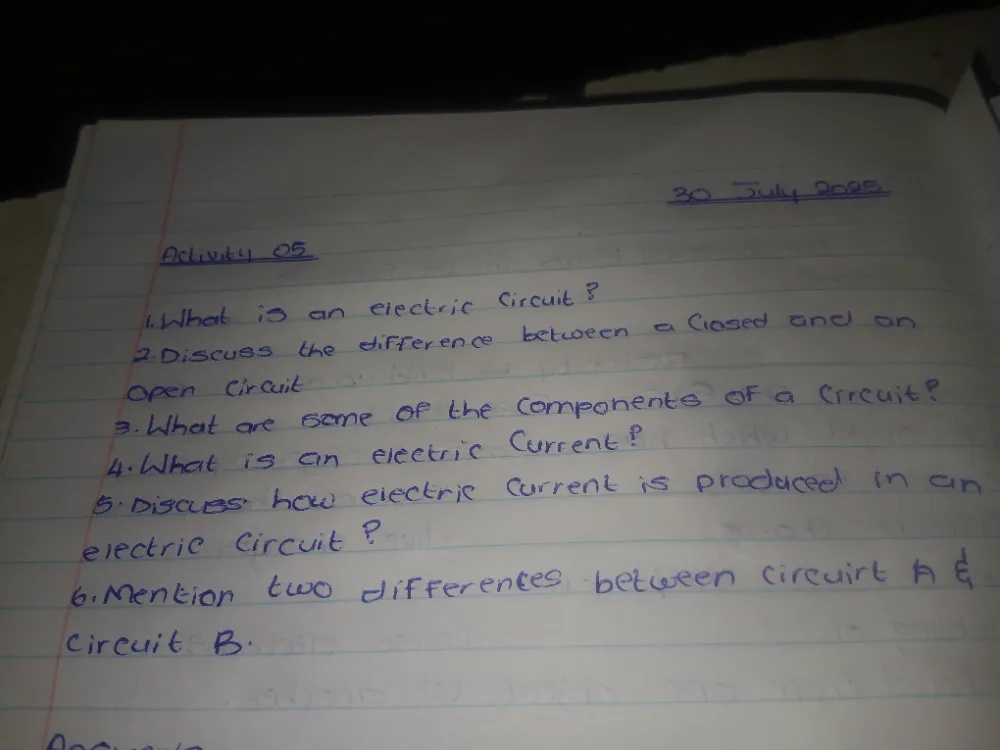 30 July 2025
Activity 05
1. What is an electric circuit?
2. Discuss the difference between a closed and an
open circuit
3. What are some of the components of a circuit?
4. What is an electric current?
5. Discuss how electric current is produced in an
electric circuit?
6. Mention two differences between circuirt A &
circuit B.